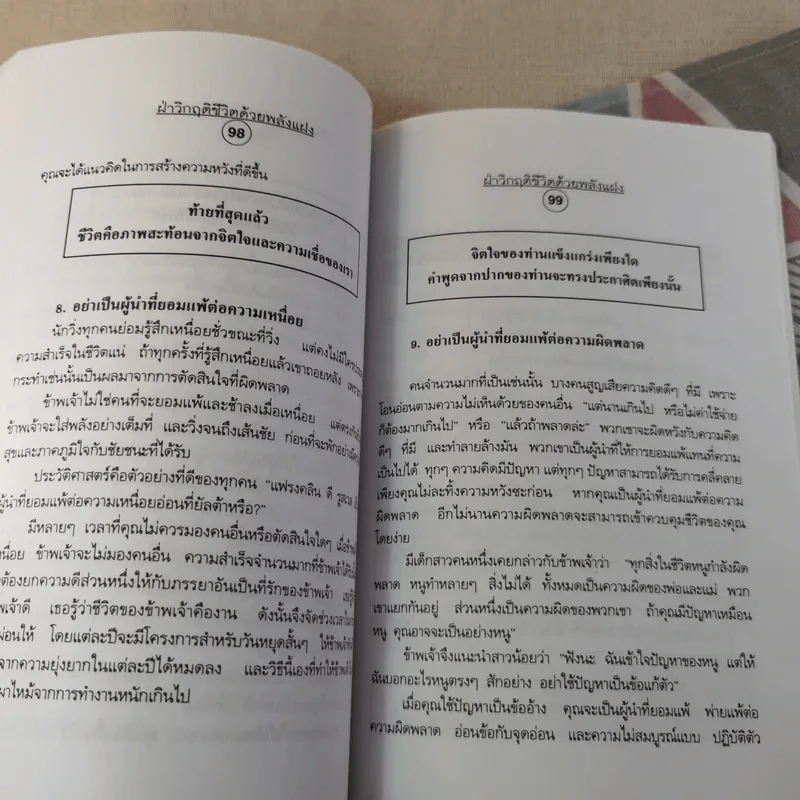 ฝ่าวิกฤติชีวิตด้วยพลังแฝง
98
คุณจะได้แนวคิดในการสร้างความหวังที่ดีขึ้น
ท้ายที่สุดแล้ว
ชีวิตคือภาพสะท้อนจากจิตใจและความเชื่อของเรา
8. อย่าเป็นผู้นำที่ยอมแพ้ต่อความเหนื่อย
นักวิ่งทุกคนย่อมรู้สึกเหนื่อยชั่วขณะที่วิ่ง แต่คงไม่มีใคร
ความสำเร็จในชีวิตแน่ ถ้าทุกครั้งที่รู้สึกเหนื่อยแล้วเขาถอยหลัง เพราะ
กระทำเช่นนั้นเป็นผลมาจากการตัดสินใจที่ผิดพลาด
ข้าพเจ้าไม่ใช่คนที่จะยอมแพ้และช้าลงเมื่อเหนื่อย
ข้าพเจ้าจะใส่พลังอย่างเต็มที่ และวิ่งจนถึงเส้นชัย ก่อนที่จะพัก
สุขและภาคภูมิใจกับชัยชนะที่ได้รับ
ประวัติศาสตร์คือตัวอย่างที่ดีของทุกคน "แฟรงคลิน ดี รูสเวล
ผู้นำที่ยอมแพ้ต่อความเหนื่อยอ่อนที่ยัลต้าหรือ?"
มีหลายๆ เวลาที่คุณไม่ควรมองคนอื่นหรือตัดสินใจใดๆ เมื่อ
เหนื่อย ข้าพเจ้าจะไม่มองคนอื่น ความสำเร็จจำนวนมากที่ข้าพเจ้าได้รับ
ต้องยกความดีส่วนหนึ่งให้กับภรรยาอันเป็นที่รักของข้าพเจ้า
พเจ้าดี เธอรู้ว่าชีวิตของข้าพเจ้าคืองาน ดังนั้นจึงจัดช่วงเวลา
ผ่อนให้ โดยแต่ละปีจะมีโครงการสำหรับวันหยุดสั้นๆ ให้ข้าพเจ้า
จากความยุ่งยากในแต่ละปีได้หมดลง และวิธีนี้เองที่ทำให้ข้าพเจ้า
ผาไหม้จากการทำงานหนักเกินไป
ฝ่าวิกฤติชีวิตด้วยพลังแฝง
99
จิตใจของท่านแข็งแกร่งเพียงใด
คำพูดจากปากของท่านจะทรงประกาศิตเพียงนั้น
9. อย่าเป็นผู้นำที่ยอมแพ้ต่อความผิดพลาด
คนจำนวนมากที่เป็นเช่นนั้น บางคนสูญเสียความคิดดีๆ ที่มี เพราะ
โอนอ่อนตามความไม่เห็นด้วยของคนอื่น "แต่นานเกินไป หรือไม่ค่าใช้จ่าย
ก็ต้องมากเกินไป" หรือ "แล้วถ้าพลาดล่ะ" พวกเขาจะผิดหวังกับความคิด
ดีๆ ที่มี และทำลายล้างมัน พวกเขาเป็นผู้นำที่ให้การยอมแพ้แทนที่ความ
เป็นไปได้ ทุกๆ ความคิดมีปัญหา แต่ทุกๆ ปัญหาสามารถได้รับการคลี่คลาย
เพียงคุณไม่ละทิ้งความหวังซะก่อน หากคุณเป็นผู้นำที่ยอมแพ้ต่อความ
ผิดพลาด อีกไม่นานความผิดพลาดจะสามารถเข้าควบคุมชีวิตของคุณ
โดยง่าย
มีเด็กสาวคนหนึ่งเคยกล่าวกับข้าพเจ้าว่า "ทุกสิ่งในชีวิตหนูกำลังผิด
พลาด หนูทำหลายๆ สิ่งไม่ได้ ทั้งหมดเป็นความผิดของพ่อและแม่ พวก
เขาแยกกันอยู่ ส่วนหนึ่งเป็นความผิดของพวกเขา ถ้าคุณมีปัญหาเหมือน
หนู คุณอาจจะเป็นอย่างหนู"
ข้าพเจ้าจึงแนะนำสาวน้อยว่า "ฟังนะ ฉันเข้าใจปัญหาของหนู แต่ให้
ฉันบอกอะไรหนูตรงๆ สักอย่าง อย่าใช้ปัญหาเป็นข้อแก้ตัว"
เมื่อคุณใช้ปัญหาเป็นข้ออ้าง คุณจะเป็นผู้นำที่ยอมแพ้ พ่ายแพ้ต่อ
ความผิดพลาด อ่อนข้อกับจุดอ่อน และความไม่สมบูรณ์แบบ ปฏิบัติตัว